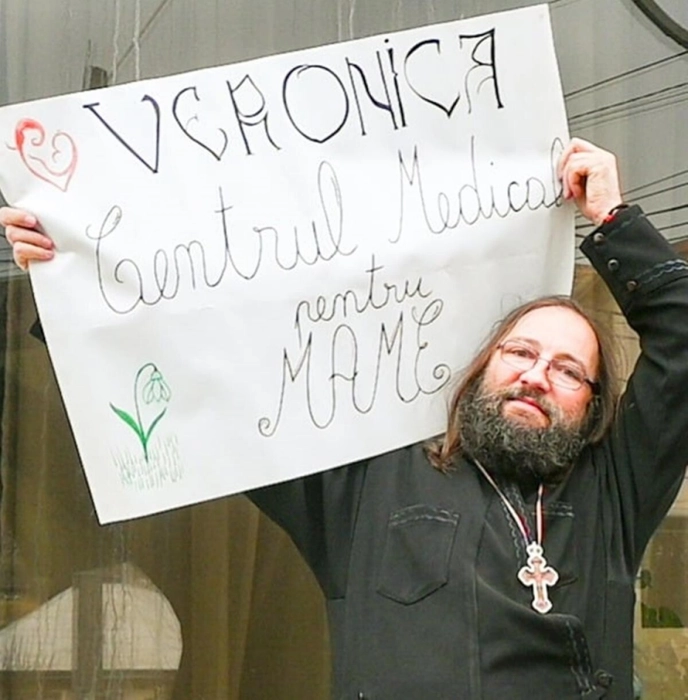 VERONICA
Centrul Medical
pentru
MAME